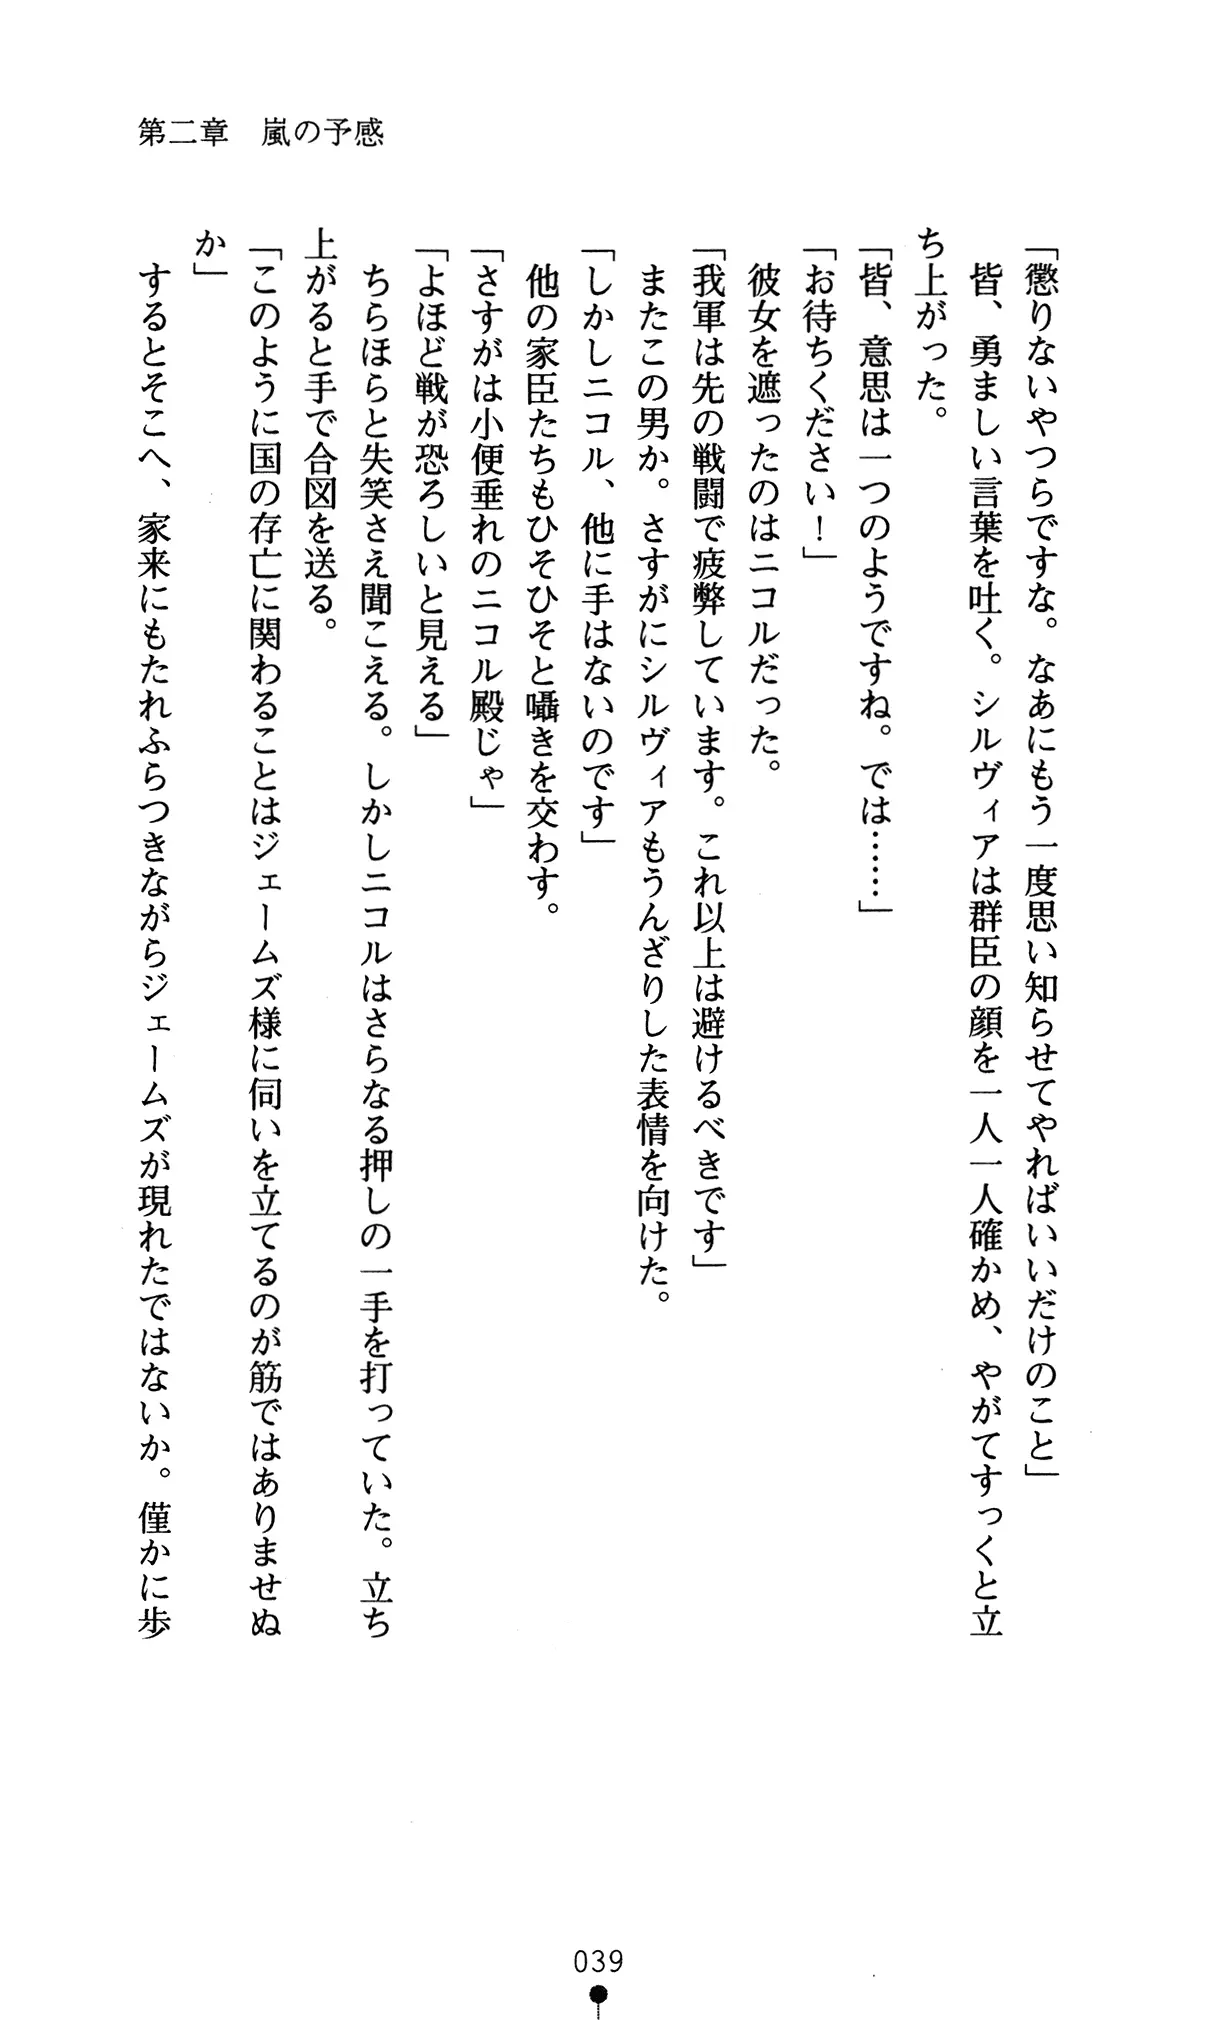 第二章　嵐の予感
「懲りないやつらですな。なあにもう一度思い知らせてやればいいだけのこと」
　皆、勇ましい言葉を吐く。シルヴィアは群臣の顔を一人一人確かめ、やがてすっくと立
ち上がった。
「皆、意思は一つのようですね。では……」
「お待ちください！」
　彼女を遮ったのはニコルだった。
「我軍は先の戦闘で疲弊しています。これ以上は避けるべきです」
　またこの男か。さすがにシルヴィアもうんざりした表情を向けた。
「しかしニコル、他に手はないのです」
　他の家臣たちもひそひそと囁きを交わす。
「さすがは小便垂れのニコル殿じゃ」
「よほど戦が恐ろしいと見える」
　ちらほらと失笑さえ聞こえる。しかしニコルはさらなる押しの一手を打っていた。立ち
上がると手で合図を送る。
「このように国の存亡に関わることはジェームズ様に伺いを立てるのが筋ではありませぬ
か」
　するとそこへ、家来にもたれふらつきながらジェームズが現れたではないか。僅かに歩
039